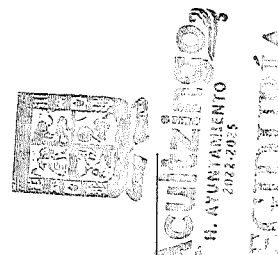 Acultzingo
H. AYUNTAMIENTO
2022-2025